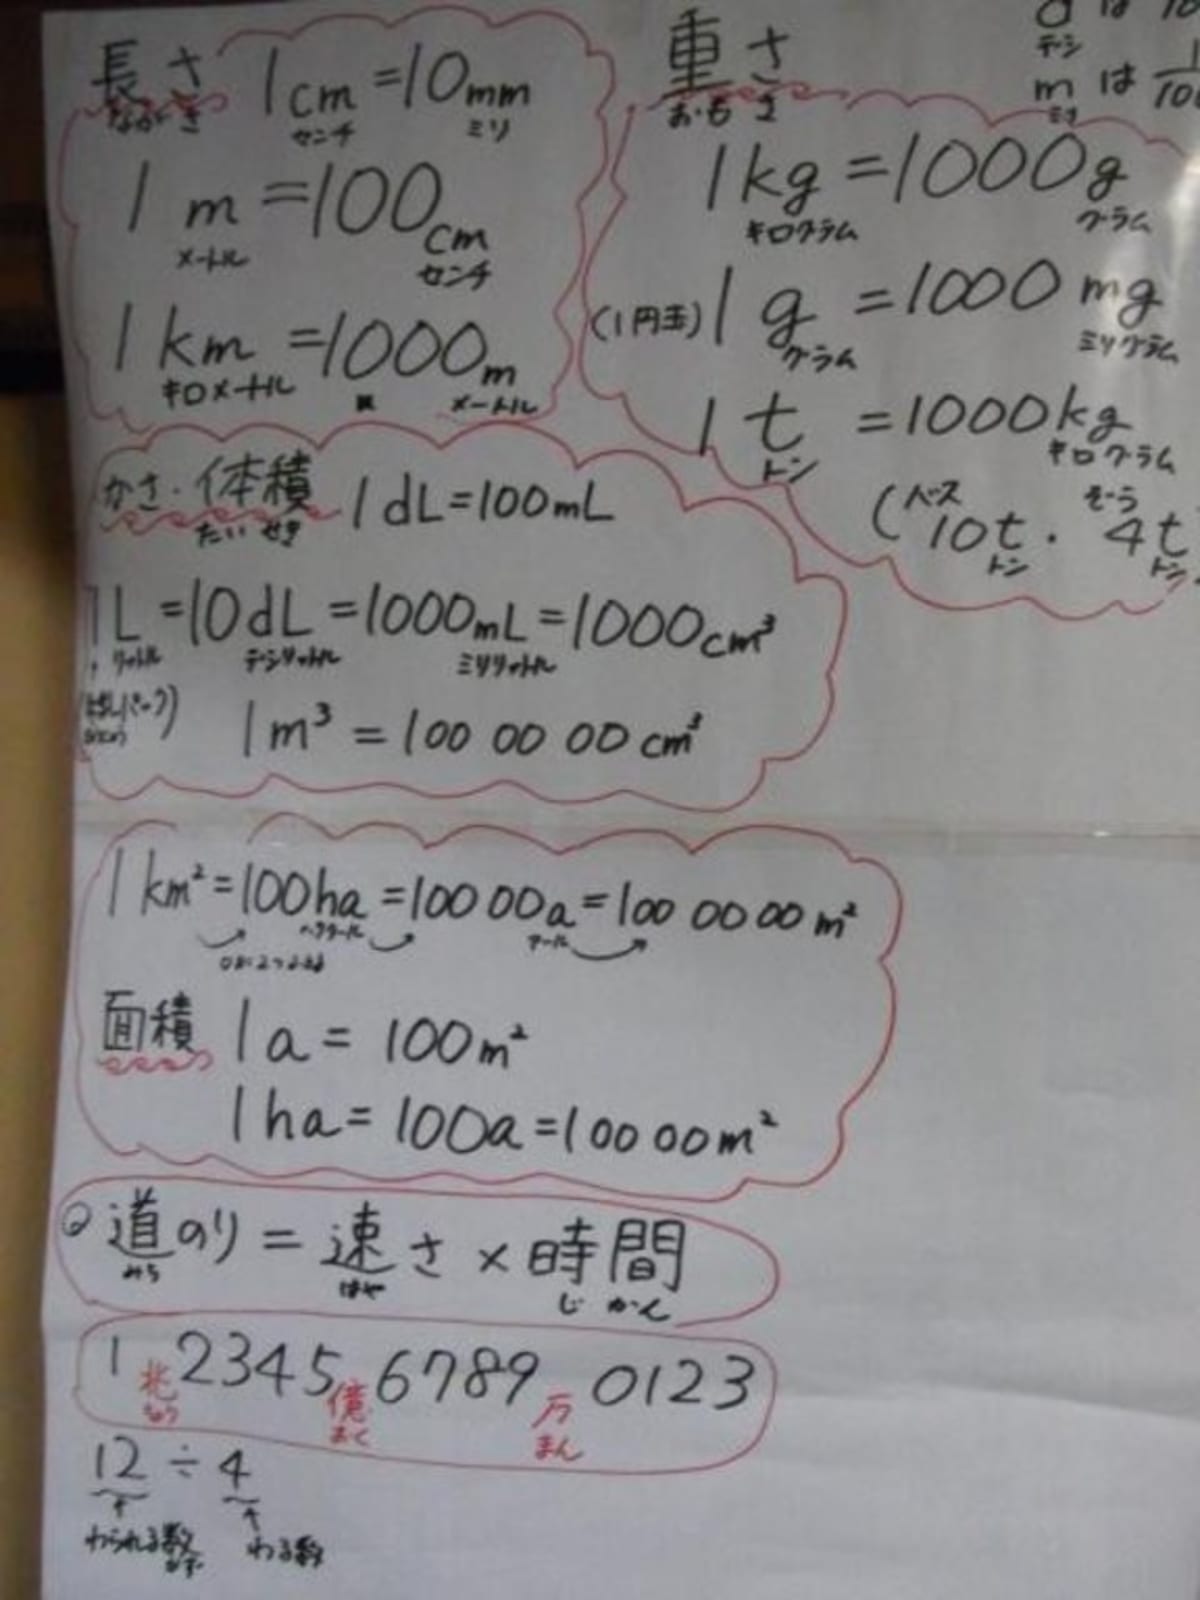 長さ 1cm=10mm
ながさ センチ ミリ
1m=100cm
メートル センチ
1km=1000m
キロメートル メートル
重さ
おもさ
デシ
m は
ミリ
1kg=1000g
キログラム グラム
(1円玉) 1g=1000mg
グラム ミリグラム
1t=1000kg
トン キログラム
(バス 10t・ぞう 4t
トン トン
かさ・体積 1dL=100mL
たいせき
1L=10dL=1000mL=1000cm³
リットル デシリットル ミリリットル
1m³=100 00 00cm³
1km²=100ha=100 00a=100 00 00m²
ヘクタール アール
面積 1a=100m²
1ha=100a=100 00m²
道のり=速さ×時間
みち はや じかん
1兆2345億6789万0123
ちょう おく まん
12÷4
わられる数 わる数
かず